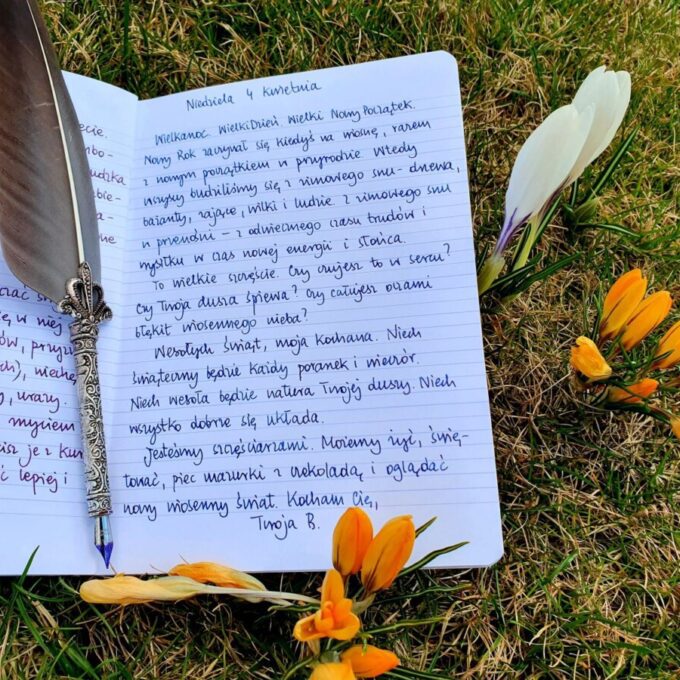 lepiej i
myciem
urazy.
w niej
Niedziela 4 kwietnia
Wielkanoc. Wielki Dzień. Wielki Nowy Początek.
Nowy Rok zaczynał się kiedyś na wiosnę, razem
z nowym początkiem w przyrodzie. Wtedy
wszyscy budziliśmy się z zimowego snu - drzewa,
bażanty, zające, wilki i ludzie z zimowego snu
w przenośni - z odwiecznego czasu trudów i
wysiłku w czas nowej energii i słońca.
To wielkie szczęście. Czy czujesz to w sercu?
Czy Twoja dusza śpiewa? Czy całujesz oczami
błękit wiosennego nieba?
Wesołych świąt, moja kochana. Niech
świąteczny będzie każdy poranek i wieczór.
Niech wesoła będzie natura Twojej duszy. Niech
wszystko dobrze się układa.
Jesteśmy szczęściarzami. Możemy żyć, świę-
tować, piec mazurki z czekoladą i oglądać
nowy wiosenny świat. Kocham Cię,
Twoja B.